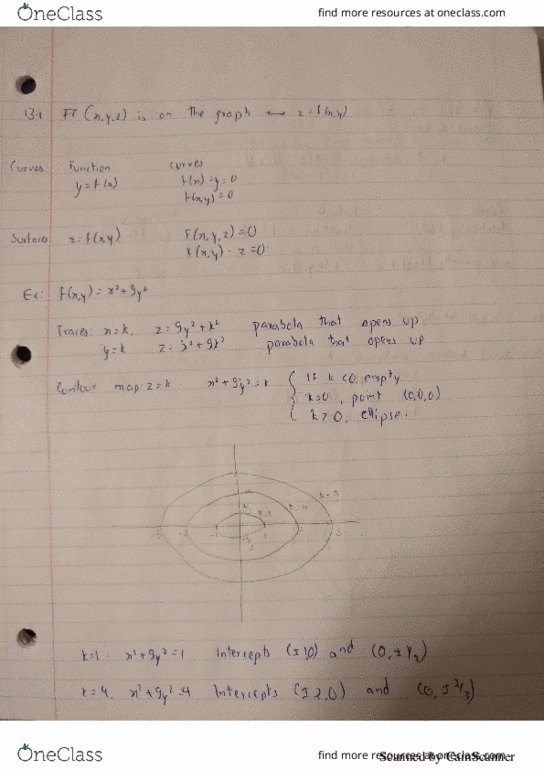 OneClass
find more resources at oneclass.com
13.1 Pt (x,y,z) is on the graph ⟷ z = f(x,y)
Curves Function curves
y = f(x) f(x) - y = 0
f(x,y) = 0
Surfaces z = f(x,y) F(x,y,z) = 0
f(x,y) - z = 0
Ex: f(x,y) = x² + 9y²
Traces: x = k, z = 9y² + k² parabola that opens up
y = k z = x² + 9k² parabola that opens up
Contour map: z = k x² + 9y² = k { If k < 0, empty
k = 0, point (0,0,0)
k > 0, ellipse.
k=9
k=4
-3 -2 -1 1 2 3
k=1: x² + 9y² = 1 Intercepts (±1,0) and (0, ±1/3)
k=4, x² + 9y² = 4 Intercepts (±2,0) and (0, ±2/3)
OneClass
find more resources at oneclass.com
Scanned by CamScanner